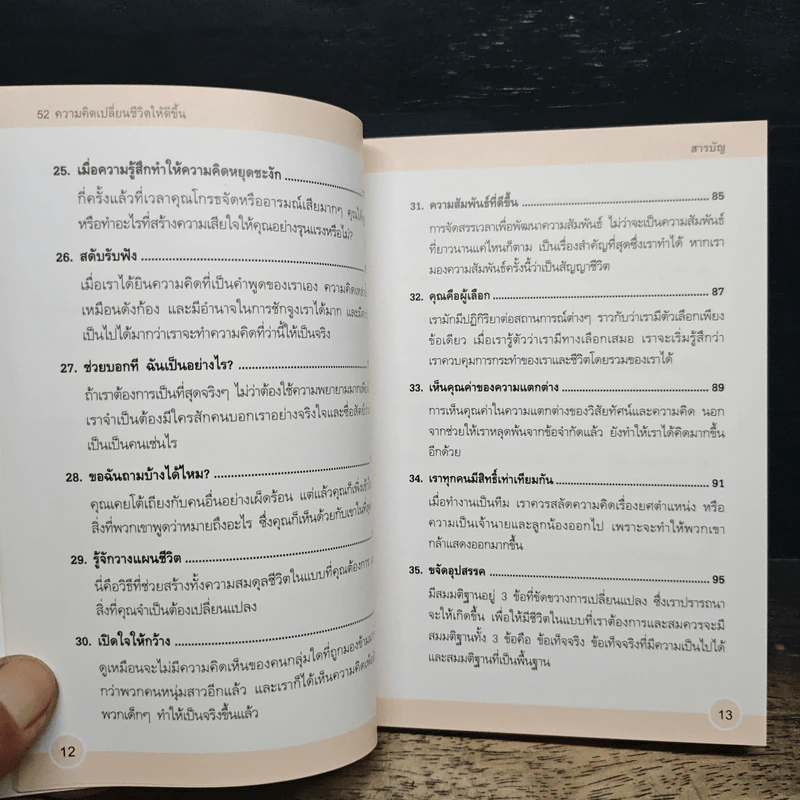 52 ความคิดเปลี่ยนชีวิตให้ดีขึ้น
25. เมื่อความรู้สึกทำให้ความคิดหยุดชะงัก
กี่ครั้งแล้วที่เวลาคุณโกรธจัดหรืออารมณ์เสียมากๆ คุณได้
หรือทำอะไรที่สร้างความเสียใจให้คุณอย่างรุนแรงหรือไม่?
26. สดับรับฟัง
เมื่อเราได้ยินความคิดที่เป็นคำพูดของเราเอง ความคิดเหล่า
เหมือนดังก้อง และมีอำนาจในการชักจูงเราได้มาก และมี
เป็นไปได้มากว่าเราจะทำความคิดที่ว่านี้ให้เป็นจริง
27. ช่วยบอกที ฉันเป็นอย่างไร?
ถ้าเราต้องการเป็นที่สุดจริงๆ ไม่ว่าต้องใช้ความพยายามมาก
เราจำเป็นต้องมีใครสักคนบอกเราอย่างจริงใจและซื่อสัตย์
เป็นเป็นคนเช่นไร
28. ขอฉันถามบ้างได้ไหม?
คุณเคยโต้เถียงกับคนอื่นอย่างเผ็ดร้อน แต่แล้วคุณก็เพิ่ง
สิ่งที่พวกเขาพูดว่าหมายถึงอะไร ซึ่งคุณก็เห็นด้วยกับเขาในที่สุด
29. รู้จักวางแผนชีวิต
นี่คือวิธีที่ช่วยสร้างทั้งความสมดุลชีวิตในแบบที่คุณต้องการ
สิ่งที่คุณจำเป็นต้องเปลี่ยนแปลง
30. เปิดใจให้กว้าง
ดูเหมือนจะไม่มีความคิดเห็นของคนกลุ่มใดที่ถูกมองข้าม
กว่าพวกคนหนุ่มสาวอีกแล้ว และเราก็ได้เห็นความคิด
พวกเด็กๆ ทำให้เป็นจริงขึ้นแล้ว
12
สารบัญ
31. ความสัมพันธ์ที่ดีขึ้น 85
การจัดสรรเวลาเพื่อพัฒนาความสัมพันธ์ ไม่ว่าจะเป็นความสัมพันธ์
ที่ยาวนานแค่ไหนก็ตาม เป็นเรื่องสำคัญที่สุดซึ่งเราทำได้ หากเรา
มองความสัมพันธ์ครั้งนี้ว่าเป็นสัญญาชีวิต
32. คุณคือผู้เลือก 87
เรามักมีปฏิกิริยาต่อสถานการณ์ต่างๆ ราวกับว่าเรามีตัวเลือกเพียง
ข้อเดียว เมื่อเรารู้ตัวว่าเรามีทางเลือกเสมอ เราจะเริ่มรู้สึกว่า
เราควบคุมการกระทำของเราและชีวิตโดยรวมของเราได้
33. เห็นคุณค่าของความแตกต่าง 89
การเห็นคุณค่าในความแตกต่างของวิสัยทัศน์และความคิด นอก
จากช่วยให้เราหลุดพ้นจากข้อจำกัดแล้ว ยังทำให้เราได้คิดมากขึ้น
อีกด้วย
34. เราทุกคนมีสิทธิ์เท่าเทียมกัน 91
เมื่อทำงานเป็นทีม เราควรสลัดความคิดเรื่องยศตำแหน่ง หรือ
ความเป็นเจ้านายและลูกน้องออกไป เพราะจะทำให้พวกเขา
กล้าแสดงออกมากขึ้น
35. ขจัดอุปสรรค 95
มีสมมติฐานอยู่ 3 ข้อที่ขัดขวางการเปลี่ยนแปลง ซึ่งเราปรารถนา
จะให้เกิดขึ้น เพื่อให้มีชีวิตในแบบที่เราต้องการและสมควรจะมี
สมมติฐานทั้ง 3 ข้อคือ ข้อเท็จจริง ข้อเท็จจริงที่มีความเป็นไปได้
และสมมติฐานที่เป็นพื้นฐาน
13